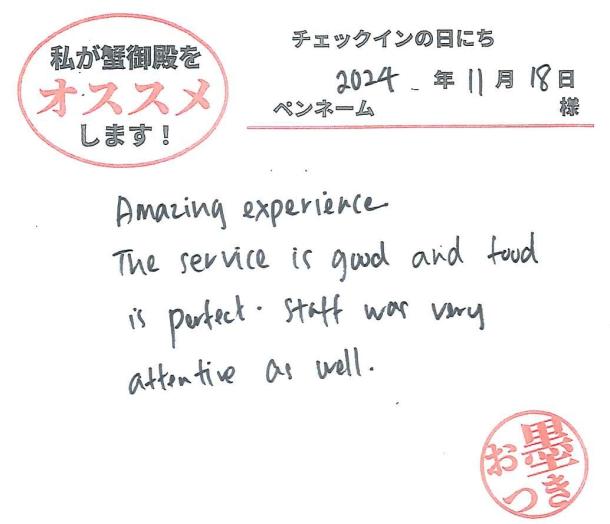 私が蟹御殿を
オススメ
します！
チェックインの日にち
2024 年 11 月 18 日
ペンネーム 様
Amazing experience
The service is good and food
is perfect. Staff was very
attentive as well.
お墨
つき